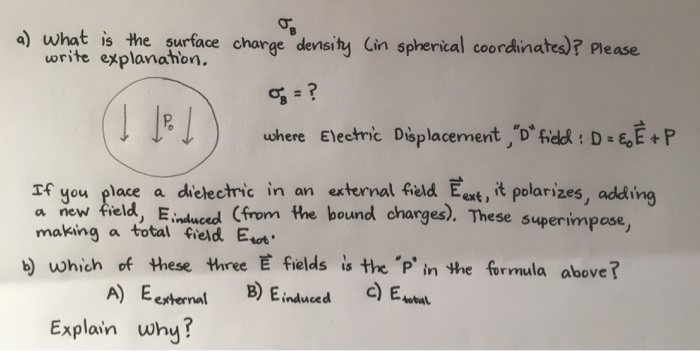 a) what is the surface charge σ_B density (in spherical coordinates)? Please
write explanation.
σ_B = ?
P₀
where Electric Displacement, "D" field : D = ε₀E⃗ + P
If you place a dielectric in an external field E⃗ext, it polarizes, adding
a new field, Einduced (from the bound charges). These superimpose,
making a total field Etot.
b) which of these three E⃗ fields is the "P" in the formula above?
A) Eexternal B) Einduced C) Etotal
Explain why?